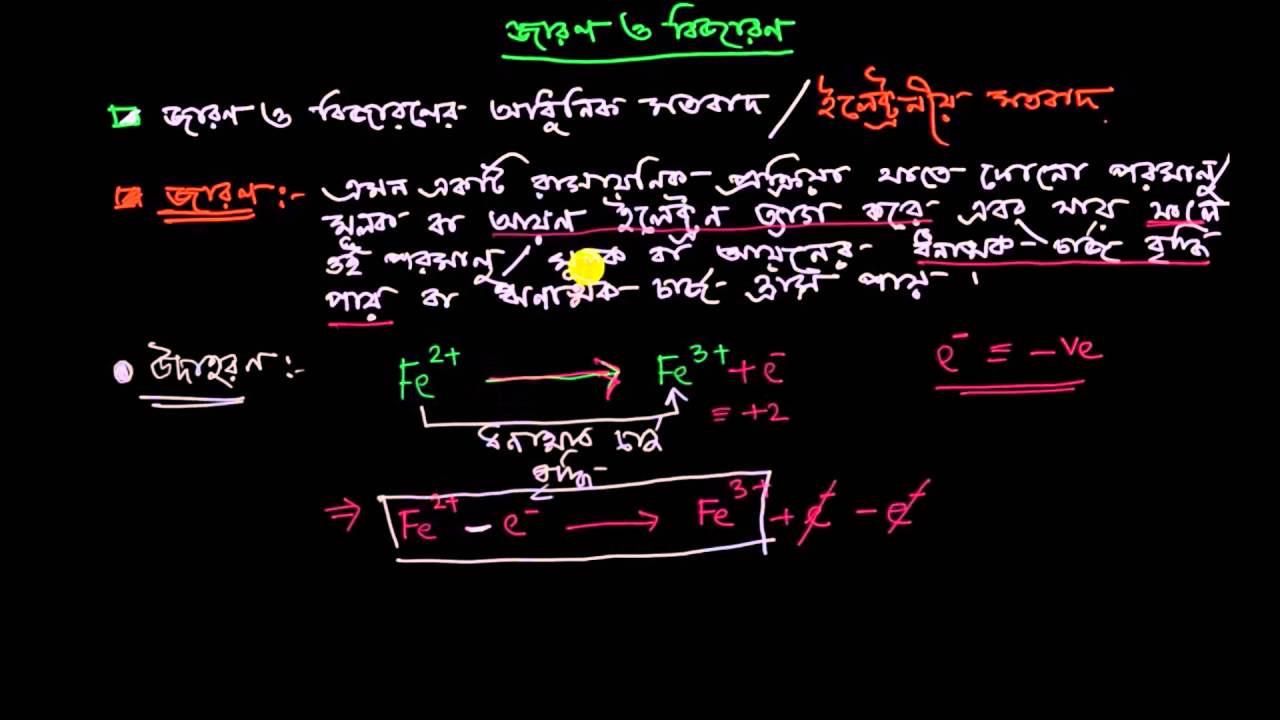 জারণ ও বিজারণ
জারণ ও বিজারণের আধুনিক মতবাদ / ইলেক্ট্রনীয় মতবাদ
জারণ :- এমন একটি রাসায়নিক প্রক্রিয়া যাতে কোনো পরমাণু/
মূলক বা আয়ন ইলেক্ট্রন ত্যাগ করে এবং যার ফলে
ওই পরমাণু/ মূলক বা আয়নের ধনাত্মক চার্জ বৃদ্ধি
পায় বা ঋণাত্মক চার্জ হ্রাস পায় ।
উদাহরণ :- Fe²⁺ → Fe³⁺ + e⁻ e⁻ ≡ -ve
≡ +2
ধনাত্মক চার্জ
বৃদ্ধি
⇒ Fe²⁺ - e⁻ → Fe³⁺ + e⁻ - e⁻